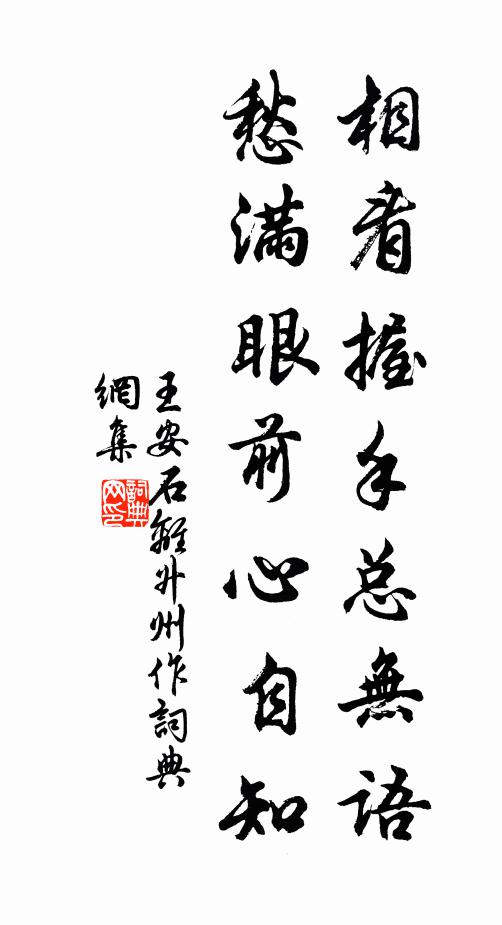 相看握手总無語
愁满眼前心自知
王安石離升州作詞典
網集
詞典網印